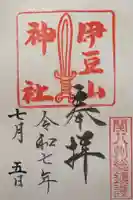 伊豆山
神社
奉拝
令和七年
七月
五日
関八州総鎮護